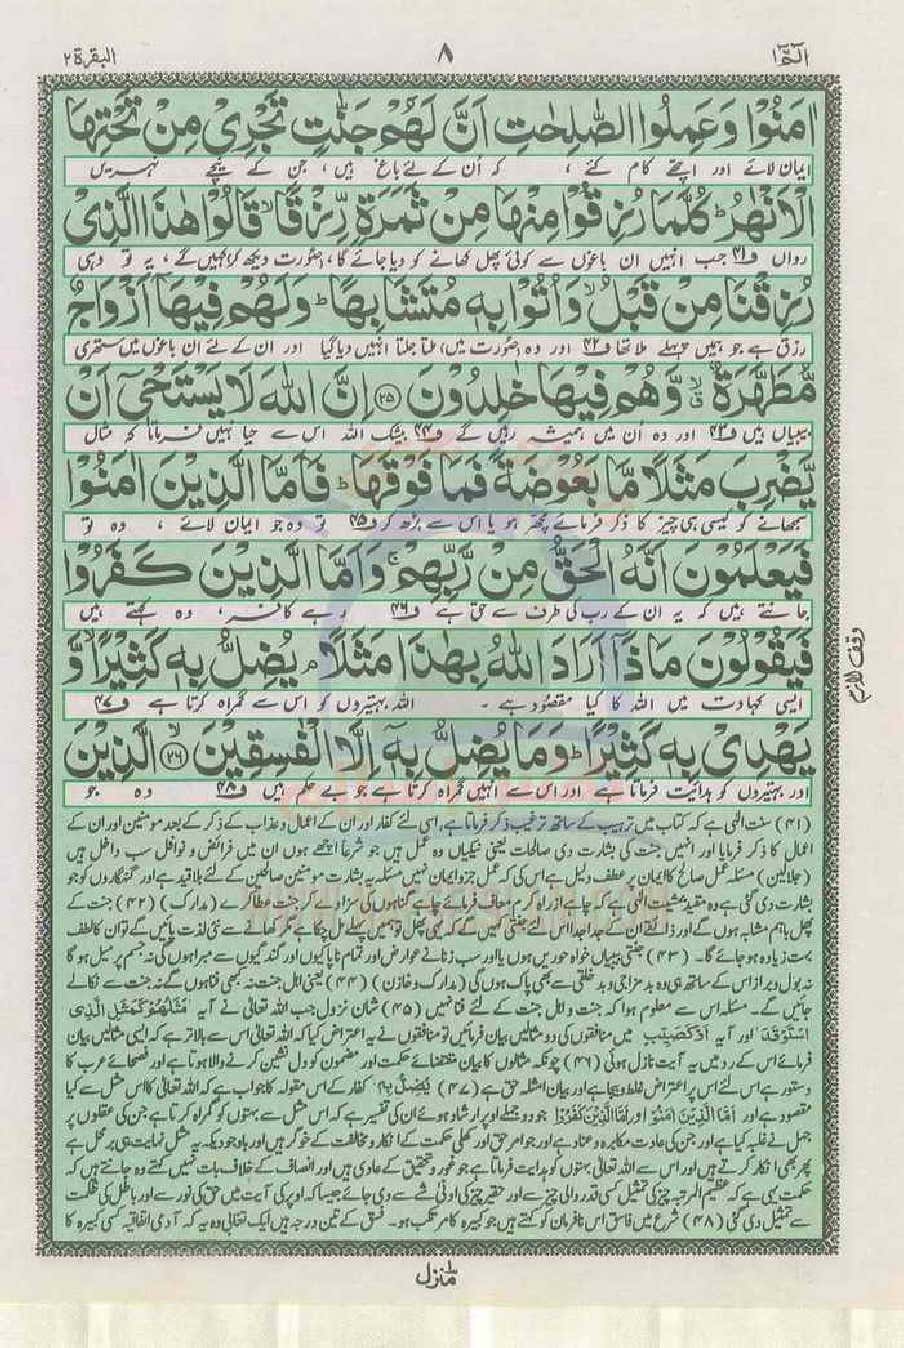 الٓمّٓ ۱
۸
البقرة ۲
اٰمَنُوْا وَعَمِلُوا الصّٰلِحٰتِ اَنَّ لَهُمْ جَنّٰتٍ تَجْرِیْ مِنْ تَحْتِهَا
ایمان لائے اور اچھے کام کئے ، کہ اُن کے لئے باغ ہیں ، جن کے نیچے نہریں
الْاَنْهٰرُ ؕ كُلَّمَا رُزِقُوْا مِنْهَا مِنْ ثَمَرَةٍ رِّزْقًا ۙ قَالُوْا هٰذَا الَّذِیْ
رواں ف۴۱ جب انہیں ان باغوں سے کوئی پھل کھانے کو دیا جائے گا، (صورت دیکھ کر) کہیں گے ، یہ تو وہی
رُزِقْنَا مِنْ قَبْلُ ۙ وَاُتُوْا بِهٖ مُتَشَابِهًا ؕ وَلَهُمْ فِیْهَاۤ اَزْوَاجٌ
رزق ہے جو ہمیں پہلے ملا تھا ف۴۲ اور وہ (صورت میں) ملتا جلتا انہیں دیا گیا اور ان کے لئے ان باغوں میں ستھری
مُّطَهَّرَةٌ ۙ وَّهُمْ فِیْهَا خٰلِدُوْنَ ﴿۲۵﴾ اِنَّ اللّٰهَ لَا یَسْتَحْیٖۤ اَنْ
بیبیاں ہیں ف۴۳ اور وہ اُن میں ہمیشہ رہیں گے ف۴۴ بیشک اللہ اس سے حیا نہیں فرماتا کہ مثال
یَّضْرِبَ مَثَلًا مَّا بَعُوْضَةً فَمَا فَوْقَهَا ؕ فَاَمَّا الَّذِیْنَ اٰمَنُوْا
سمجھانے کو کیسی ہی چیز کا ذکر فرمائے مچھر ہو یا اس سے بڑھ کر ف۴۵ تو وہ جو ایمان لائے ، وہ تو
فَیَعْلَمُوْنَ اَنَّهُ الْحَقُّ مِنْ رَّبِّهِمْ ۚ وَاَمَّا الَّذِیْنَ كَفَرُوْا
جانتے ہیں کہ یہ ان کے رب کی طرف سے حق ہے ف۴۶ رہے کافر ، وہ کہتے ہیں
فَیَقُوْلُوْنَ مَاذَاۤ اَرَادَ اللّٰهُ بِهٰذَا مَثَلًا ۘ یُضِلُّ بِهٖ كَثِیْرًا ۙ وَّ
ایسی کہاوت میں اللہ کا کیا مقصود ہے ۔ اللہ بہتیروں کو اس سے گمراہ کرتا ہے ف۴۷
وقف لازم
یَهْدِیْ بِهٖ كَثِیْرًا ؕ وَمَا یُضِلُّ بِهٖۤ اِلَّا الْفٰسِقِیْنَ ﴿۲۶﴾ ۙ الَّذِیْنَ
اور بہتیروں کو ہدایت فرماتا ہے اور اس سے انہیں گمراہ کرتا ہے جو بے حکم ہیں ف۴۸ وہ جو
(۴۱) سنت الٰہی ہے کہ کتاب میں ترہیب کے ساتھ ترغیب ذکر فرماتا ہے اسی لئے کفار اور ان کے اعمال و عذاب کے ذکر کے بعد مومنین اور ان کے
اعمال کا ذکر فرمایا اور انہیں جنت کی بشارت دی صالحات یعنی نیکیاں وہ عمل ہیں جو شرعاً اچھے ہوں ان میں فرائض و نوافل سب داخل ہیں
(جلالین) مسئلہ عمل صالح کا ایمان پر عطف دلیل ہے اس کی کہ عمل جزو ایمان نہیں مسئلہ یہ بشارت مومنین صالحین کے لئے بلا قید ہے اور گنہگاروں کو جو
بشارت دی گئی ہے وہ مقید بمشیت الٰہی ہے کہ چاہے از راہ کرم معاف فرمائے چاہے گناہوں کی سزا دے کر جنت عطا کرے (مدارک) (۴۲) جنت کے
پھل باہم مشابہ ہوں گے اور ذائقے ان کے جدا جدا اس لئے جنتی کہیں گے کہ یہی پھل تو ہمیں پہلے مل چکا ہے مگر کھانے سے نئی لذت پائیں گے تو ان کا لطف
بہت زیادہ ہو جائے گا۔ (۴۳) جنتی بیبیاں خواہ حوریں ہوں یا اور سب زنانے عوارض اور تمام ناپاکیوں اور گندگیوں سے مبرا ہوں گی نہ جسم پر میل ہو گا
نہ بول و براز اس کے ساتھ ہی وہ بد مزاجی و بد خلقی سے بھی پاک ہوں گی (مدارک و خازن) (۴۴) یعنی اہل جنت نہ کبھی فنا ہوں گے نہ جنت سے نکالے
جائیں گے۔ مسئلہ اس سے معلوم ہوا کہ جنت و اہل جنت کے لئے فنا نہیں (۴۵) شان نزول جب اللہ تعالیٰ نے آیہ مَثَلُهُمْ كَمَثَلِ الَّذِی
اسْتَوْقَدَ اور آیہ اَوْ كَصَیِّبٍ میں منافقوں کی دو مثالیں بیان فرمائیں تو منافقوں نے یہ اعتراض کیا کہ اللہ تعالیٰ اس سے بالاتر ہے کہ ایسی مثالیں بیان
فرمائے اس کے رد میں یہ آیت نازل ہوئی (۴۶) چونکہ مثالوں کا بیان مقتضائے حکمت اور مضمون کو دل نشین کرنے والا ہوتا ہے اور فصحائے عرب کا
دستور ہے اس لئے اس پر اعتراض غلط و بیجا ہے اور بیان امثلہ حق ہے (۴۷) یُضِلُّ بِهٖ کفار کے اس مقولہ کا جواب ہے کہ اللہ تعالیٰ کا اس مثل سے کیا
مقصود ہے اور اَمَّا الَّذِیْنَ اٰمَنُوْا اور اَمَّا الَّذِیْنَ كَفَرُوْا جو دو جملے اوپر ارشاد ہوئے ان کی تفسیر ہے کہ اس مثل سے بہتوں کو گمراہ کرتا ہے جن کی عقلوں پر
جہل نے غلبہ کیا ہے اور جن کی عادت مکابرہ و عناد ہے اور جو امر حق اور کھلی حکمت کے انکار و مخالفت کے خوگر ہیں اور باوجودیکہ یہ مثل نہایت ہی بر محل ہے
پھر بھی انکار کرتے ہیں اور اس سے اللہ تعالیٰ بہتوں کو ہدایت فرماتا ہے جو غور و تحقیق کے عادی ہیں اور انصاف کے خلاف بات نہیں کہتے وہ جانتے ہیں کہ
حکمت یہی ہے کہ عظیم المرتبہ چیز کی تمثیل کسی قدر والی چیز سے اور حقیر چیز کی ادنیٰ شے سے دی جائے جیسا کہ اوپر کی آیت میں حق کی نور سے اور باطل کی ظلمت
سے تمثیل دی گئی (۴۸) شرع میں فاسق اس نافرمان کو کہتے ہیں جو کبیرہ کا مرتکب ہو۔ فسق کے تین درجہ ہیں ایک تغابی وہ یہ کہ آدمی اتفاقیہ کسی کبیرہ کا
منزل ۱